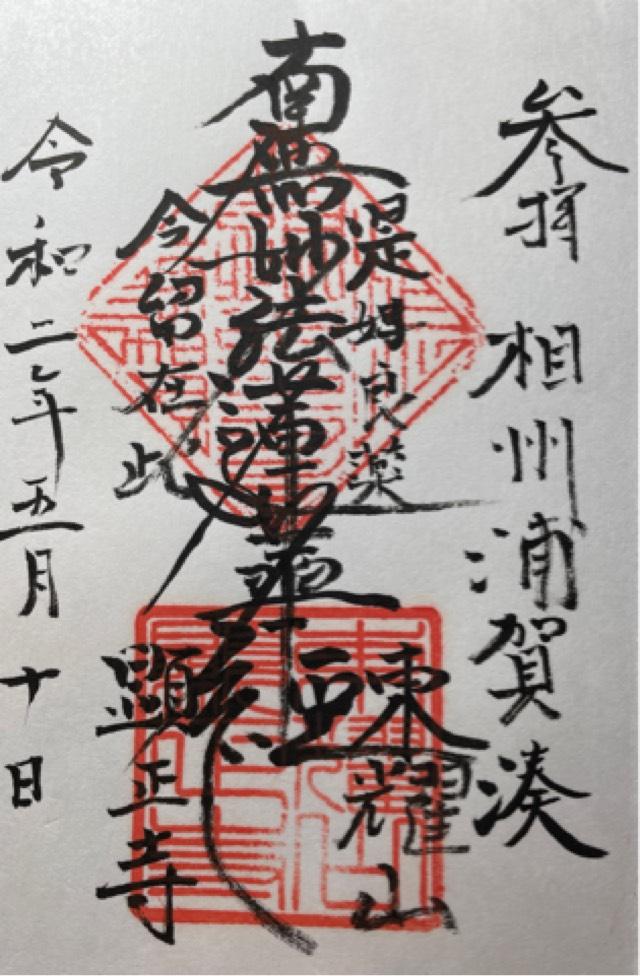 参拝 相州浦賀湊
東耀山
是好良薬
南無妙法蓮華経
今留在此
顕正寺
令和二年五月十日